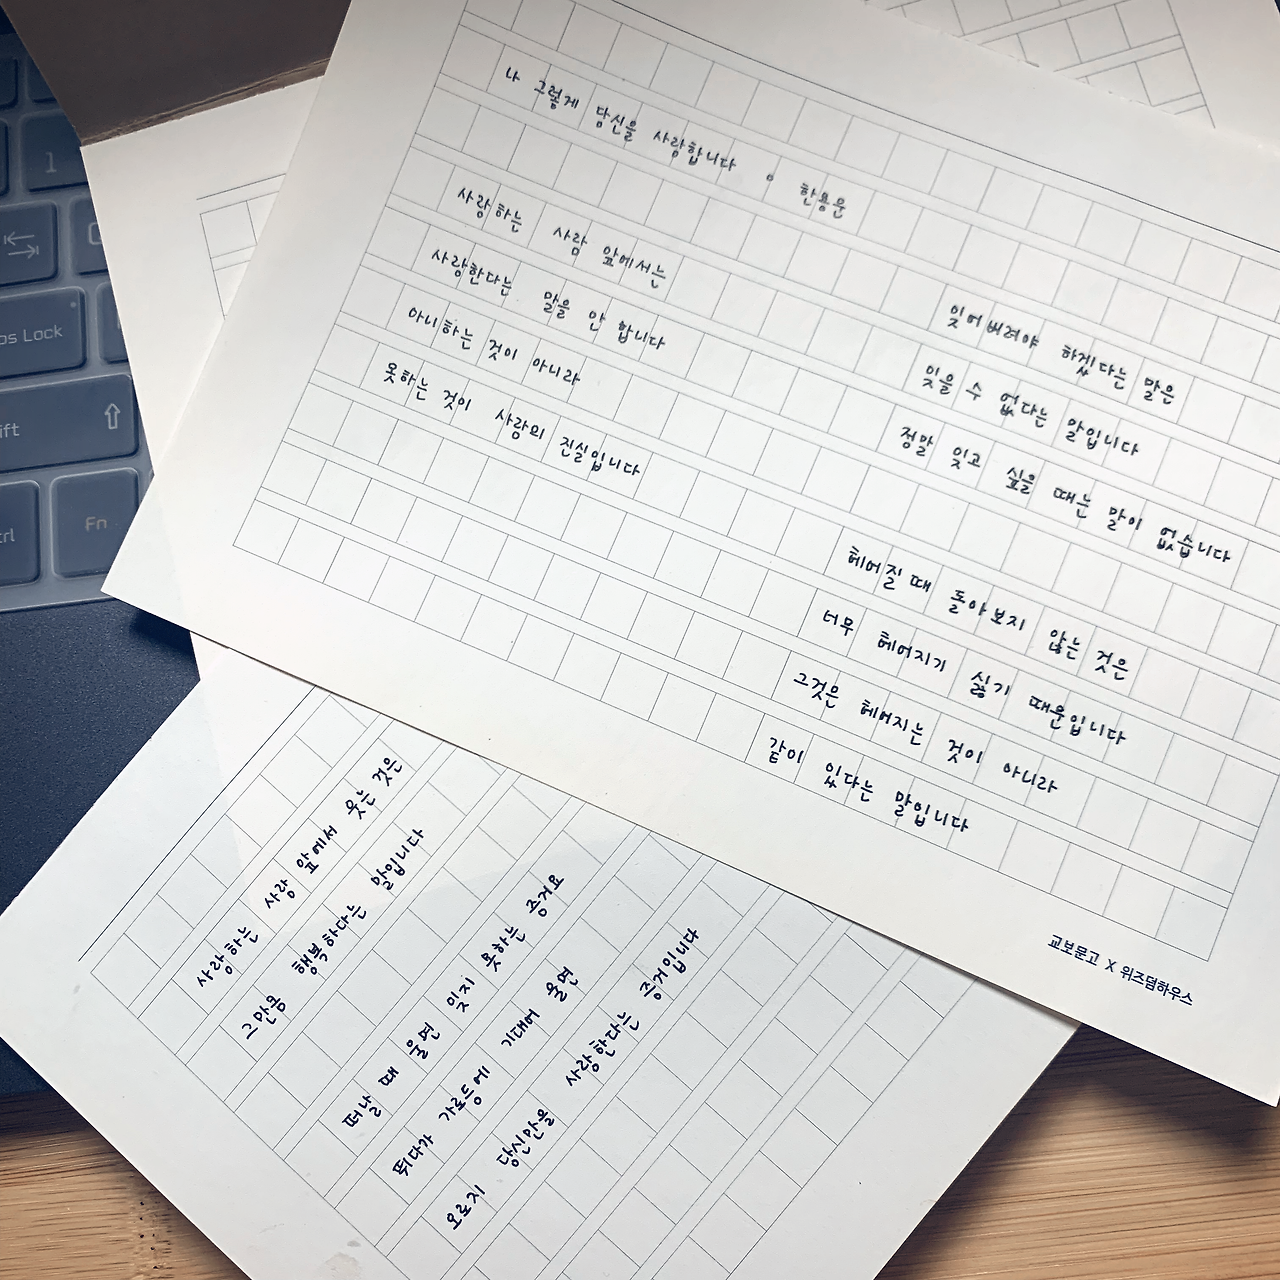 나 그렇게 당신을 사랑합니다 。 한용운
사랑하는 사람 앞에서는
사랑한다는 말을 안 합니다
아니하는 것이 아니라
못하는 것이 사랑의 진실입니다
잊어버려야 하겠다는 말은
잊을 수 없다는 말입니다
정말 잊고 싶을 때는 말이 없습니다
헤어질 때 돌아보지 않는 것은
너무 헤어지기 싫기 때문입니다
그것은 헤어지는 것이 아니라
같이 있다는 말입니다
교보문고 X 위즈덤하우스
사랑하는 사람 앞에서 웃는 것은
그만큼 행복하다는 말입니다
떠날 때 울면 잊지 못하는 증거요
뛰다가 가로등에 기대어 울면
오로지 당신만을 사랑한다는 증거입니다
1
Lock
Fn